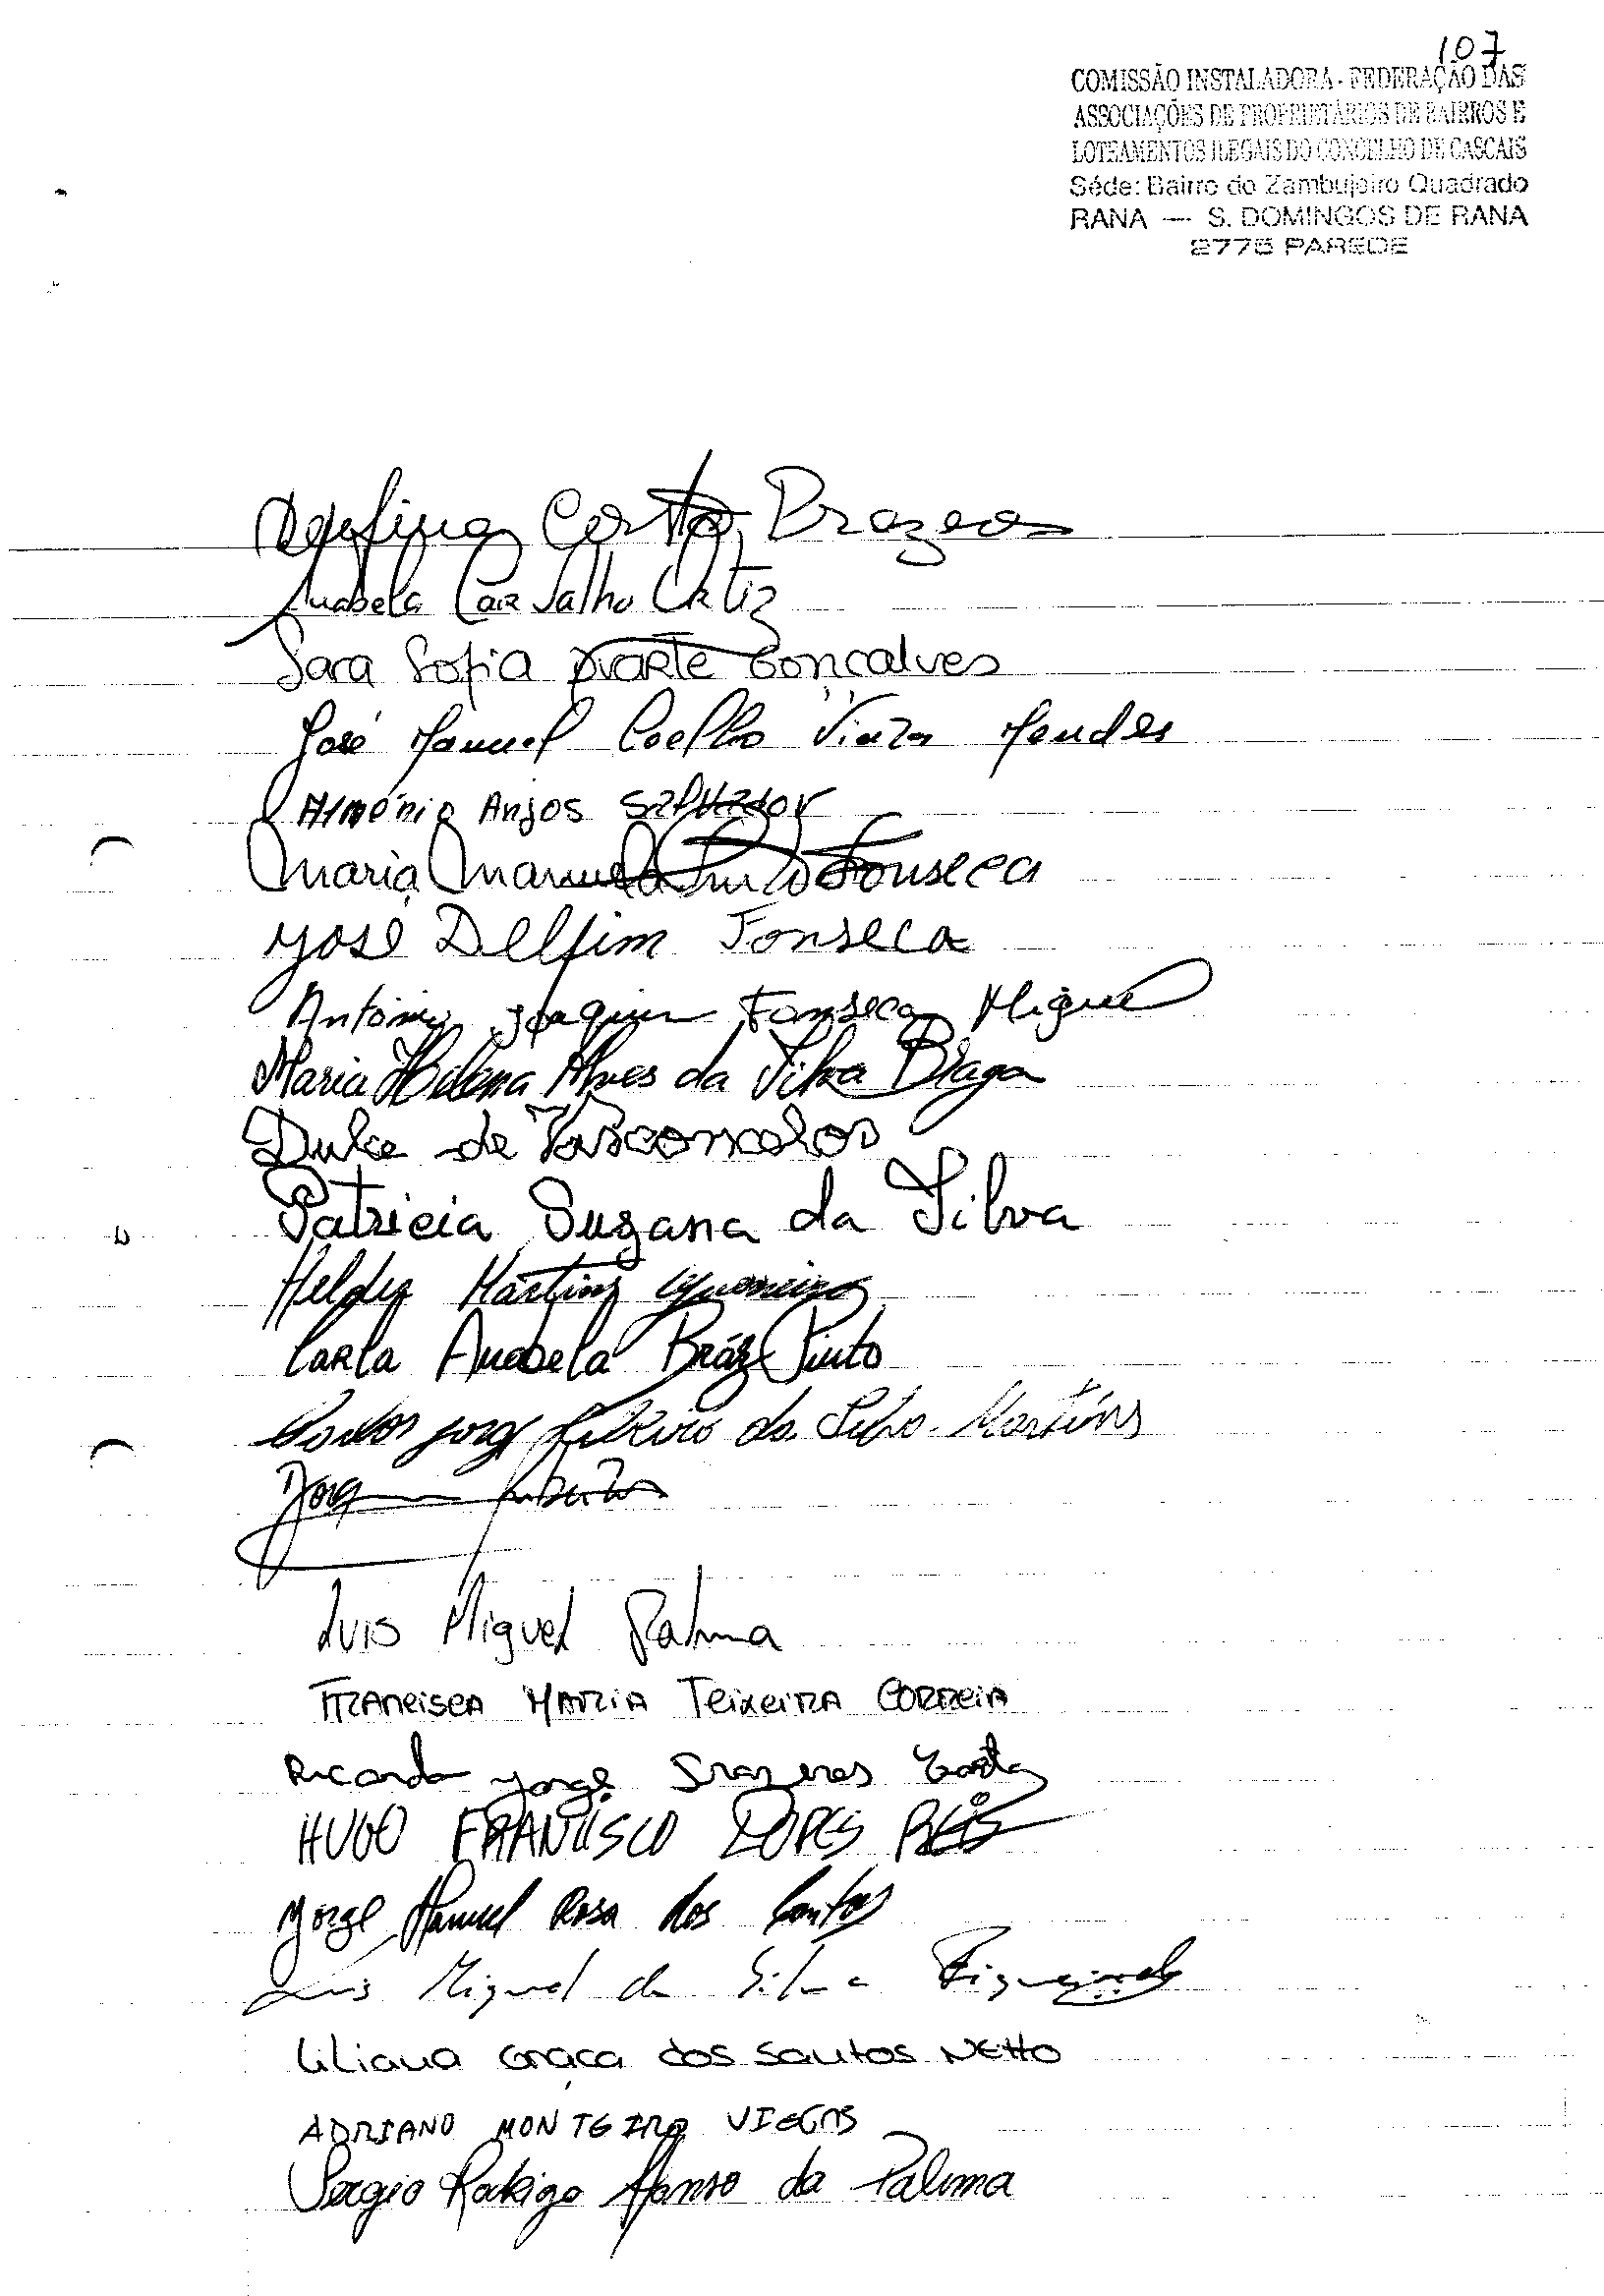 107
COMISSÃO INSTALADORA - FEDERAÇÃO DAS
ASSOCIAÇÕES DE PROPRIETÁRIOS DE BAIRROS E
LOTEAMENTOS ILEGAIS DO CONCELHO DE CASCAIS
Séde: Bairro do Zambujeiro Quadrado
RANA — S. DOMINGOS DE RANA
2775 PAREDE
Delfina Costa
Anabela Carvalho Ortiz
Sara Sofia Duarte Gonçalves
José Manuel Coelho Mendes
Anjos Salvador
Maria Manuela Fonseca
José Delfim Fonseca
António Joaquim Fonseca Miguel
Maria Helena Alves da Silva Braga
Dulce de Vasconcelos
Patricia Suzana da Silva
Helder Martins
Carla Anabela Bráz Pinto
Carlos Jorge Ribeiro da Silva Martins
Luis Miguel Palma
FRANCISCA MARIA TEIXEIRA CORREIA
Ricardo Jorge Costa
HUGO FRANCISCO LOPES REIS
Jorge Manuel Rosa dos Santos
Luis Miguel da Silva Figueiredo
Liliana Graça dos Santos Netto
ADRIANO MONTEIRO VIEGAS
Sergio Rodrigo Afonso da Palma